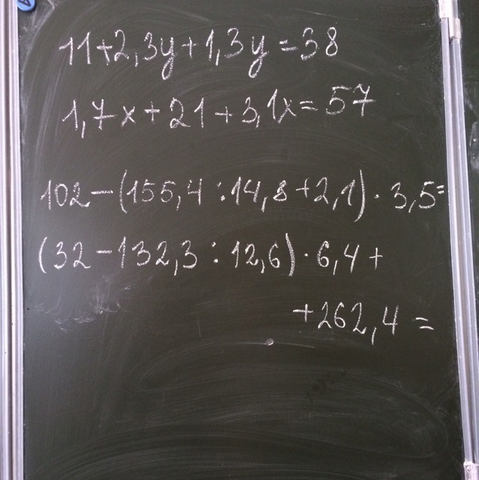 11+2,3y+1,3y=38
1,7x+21+3,1x=57
102-(155,4:14,8+2,1)·3,5=
(32-132,3:12,6)·6,4+
+262,4=